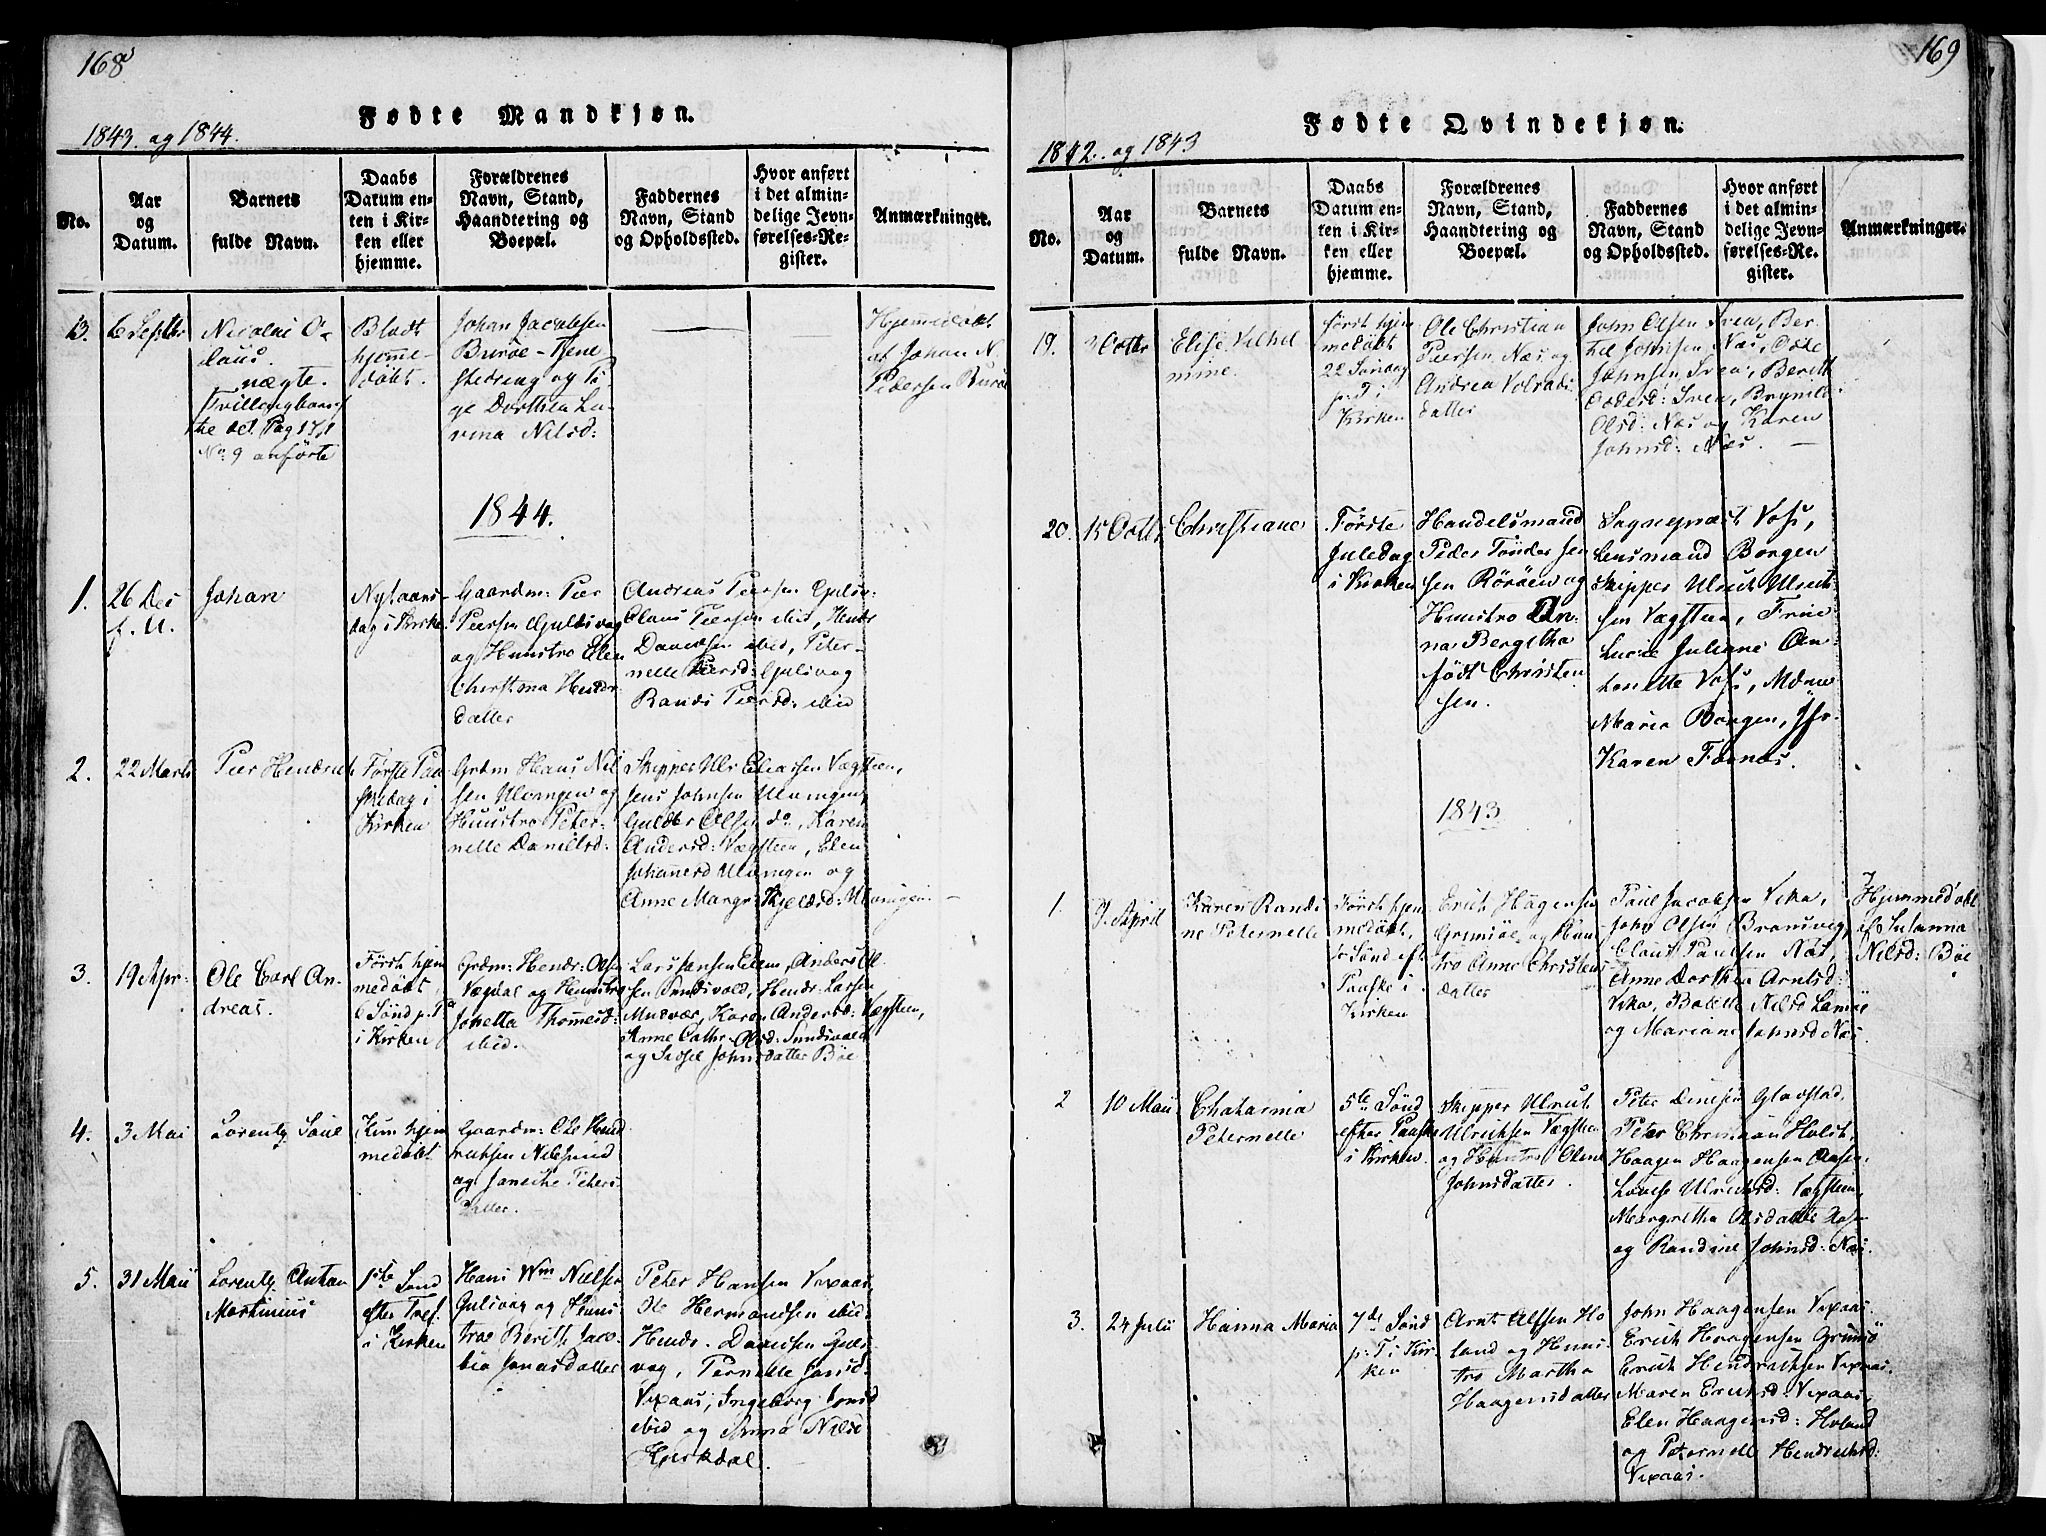 168
Fødte Mandkjøn.
1843. og 1844.
No.
Aar
og
Datum.
Barnets
fulde Navn.
Daabs
Datum en-
ten i Kir-
ken eller
hjemme.
Forældrenes
Navn, Stand,
Haandtering og
Boepæl.
Faddernes
Navn, Stand
og Opholdssted.
Hvor anført
i det almin-
delige Jevn-
førelses-Re-
gister.
Anmærkninger.
13.
6 Septbr
Nicolai O-
laus.
uægte.
Tvillingbarn
No 9 anførte
Blodt
hjemme-
døbt.
Johan Jacobsen
Burøe - Tjene
og Pi-
ge Dorthea La-
vina Nilsd:
Hjemmedøbt
af Johan N.
Petersen Burøe
1844.
1.
26 Dec
f. A.
Johan
Nytaars-
dag i Kirke
Gaardm: Peer
Peersen Gulsvog
og Hunstro Elen
Christina Hendr
datter
Andreas Peersen Gulsv:
Claus Peersen ibid, Hendr
Danielsen ibid, Peter-
nelle Peersd: Gulsvog
Randi Peersd: ibid
2.
22 Marts
Peer Hendrik
Første Paa-
skedag i
Kirken
Grdm Hans Nil
sen Ulvingen og
Hunstro Peter-
nelle Danielsd:
Skipper Ulr Eliassen Vægsteen,
Jens Johnsen Ulvingen,
Olsen do, Karen
Andersd: Vægsteen, Elen
Johannesd Ulvingen og
Anne Margr: Kjeldsd: Ulvingen.
3.
19 Apr:
Ole Carl An-
dreas.
Først hjem
medøbt,
6 Sönd p. P
i Kirken
Grdm: Hendr: Olsen
Vægdal og Hunstro
Johetta Thomesd:
ibid.
Lars Jansen Elem, Anders Ol-
sen Sundsvold, Hendr: Larsen
Musvær, Karen Andersd: Vægsteen,
Anne Cathr. Olsd: Sundsvold
og Sidsel Johnsdatter Böe
4.
3 Mai
Lorentz Paul
Kun hjem
medøbt
Gaardm: Ole Hend
richsen Nilssund
og Janeche Peters
Datter.
5.
31 Maii
Lorentz Anton
Martinius
1ste Sönd
efter Tref.
i Kirken
Hans Wm Nielsen
Gulsvog og Huus
troe Berith Jaco-
bia Jonasdatter
Peter Hansen Vixaas,
Ole Hermandsen ibid.
Hendr. Danielsen Guls
vog, Pernille Jonsd.
Vixaas, Ingeborg Jonsd
ibid og Anna Nilsd
Kjerkdal.
169
Fødte Qvindekjøn.
1842. og 1843
No.
Aar
og
Datum.
Barnets
fulde Navn.
Daabs
Datum en-
ten i Kir-
ken eller
hjemme.
Forældrenes
Navn, Stand,
Haandtering og
Boepæl.
Faddernes
Navn, Stand
og Opholdssted.
Hvor anført
i det almin-
delige Jevn-
førelses-Re-
gister.
Anmærkninger.
19.
Octbr
Elise Vilhel
mine.
Først hjem
medøbt
22 Söndag
p. T i
Kirken
Ole Christian
Peersen Næs og
Andrea Volrads
datter
John Olsen Svea, Ber-
til Johnsen Næs, Odde
Johnsen Svea, Berith
Oddesd: Svea, Brynild
Olsd: Næs og Karen
Johnsd: Næs.
20.
15 Octbr
Christiane
Første
Juledag
i Kirken
Handelsmand
Peder Tönder Jen
sen Rörøen og
Hunstro An-
na Bergitha
født Christen
sen.
Sognepræst Voss,
Lensmand Borgen
Skipper Ulrich Ulrich-
sen Vægsteen, Frue
Lucie Juliane An-
tonette Voss, Mdme
Maria Borgen, Jfr.
Karen Fornæs.
1843
1.
9 April
Karen Randi
ne Peternelle
Først hjem
medøbt,
Sönd eft
Paaske i
Kirken
Erich Hagensen
Grundøe og Huus
tro Anne Christens
datter
Paul Jacobsen Vika,
John Olsen Bronsvig,
Claus Paulsen Næs,
Anne Dorthea Arntsd:
Vika, Bolette Nilsd Lamøe
og Mariane Johnsd Næs.
Hjemmedøbt
af Susanna
Nilsd: Böe
2
10 Maii
Chatarina
Peternelle
5te Sönd
efter Paaske
i Kirken
Skipper Ulrich
Ulrichsen Vægsteen
og Hunstro Olene
Johnsdatter.
Peter Dinesen Glavstad,
Peter Christian Holst,
Haagen Haagensen Aasen,
Lovise Ulrichsd: Vægsteen,
Margretha Olsdatter Aasen
og Randine Johnsd: Næs.
3.
24 Julii
Hanna Maria
7de Sönd
p: T i Kir-
ken
Arnt Alfsen Ho
land og Huus
tro Martha
Haagensdatter
John Haagensen Vixaas.
Erich Haagensen Grundø
Erich Hendrichsen Vixaas.
Maren Erichsd Vixaas,
Elen Haagensd: Holand
og Peternelle Hendrichsd:
Vixaas.